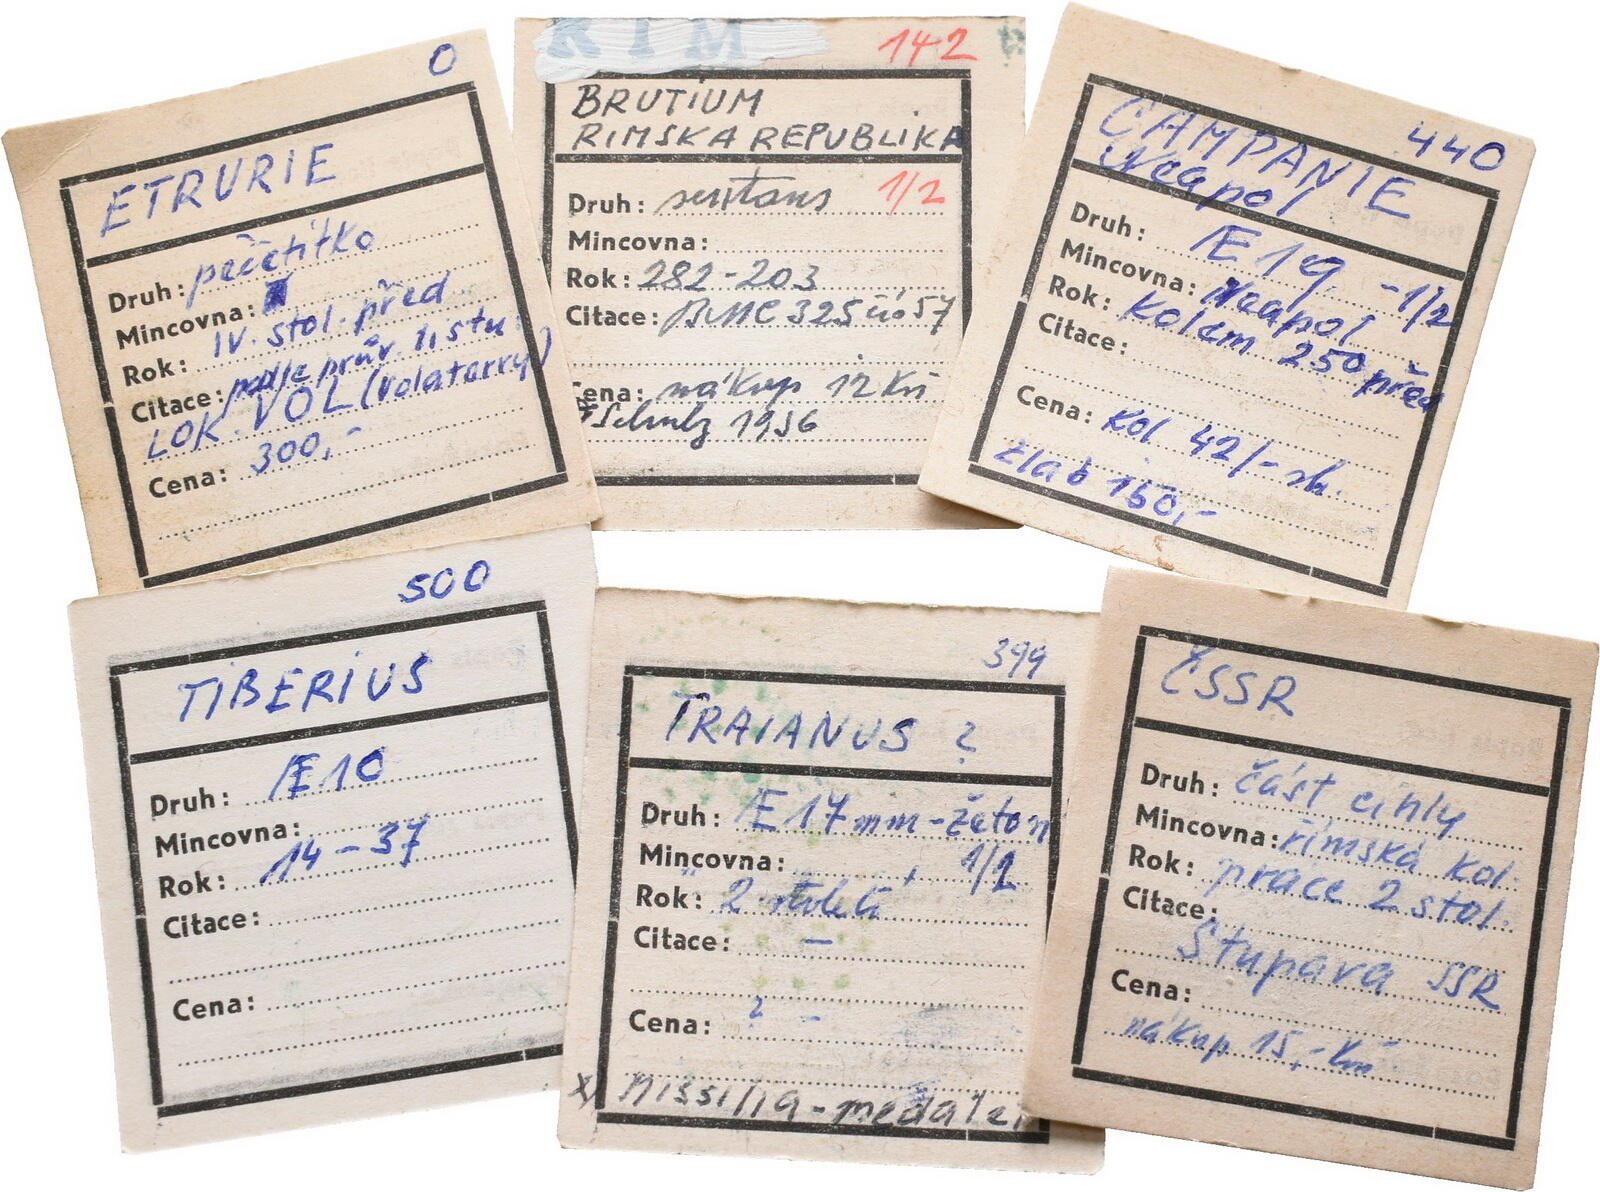 0
ETRURIE
Druh: pečetítko
Mincovna:
Rok: IV. stol. před
Citace: podle prův. l. stu
LOK. VOL (Volaterry)
Cena: 300,-
RIM
142
BRUTIUM
RIMSKA REPUBLIKA
Druh: sextans 1/2
Mincovna:
Rok: 282-203
Citace: BMC 325 čís 57
Cena: nákup 12 Kčs
Schulz 1956
440
CAMPANIE
Neapol
Druh: Æ 19 -1/2
Mincovna: Neapol
Rok: Kolem 250 před
Citace:
Cena: Kol 42/- sh.
Zlab 150,-
500
TIBERIUS
Druh: Æ 10
Mincovna:
Rok: 14 - 37
Citace:
Cena:
399
TRAIANUS ?
Druh: Æ 17 mm - žeton
Mincovna: 1/2
Rok: 2. století
Citace: -
Cena: ? -
x) Missilia - medaile
ČSSR
Druh: část cihly
Mincovna: římská kol.
Rok: práce 2 stol.
Citace:
Stupava SSR
Cena:
nákup 15,- Kčs